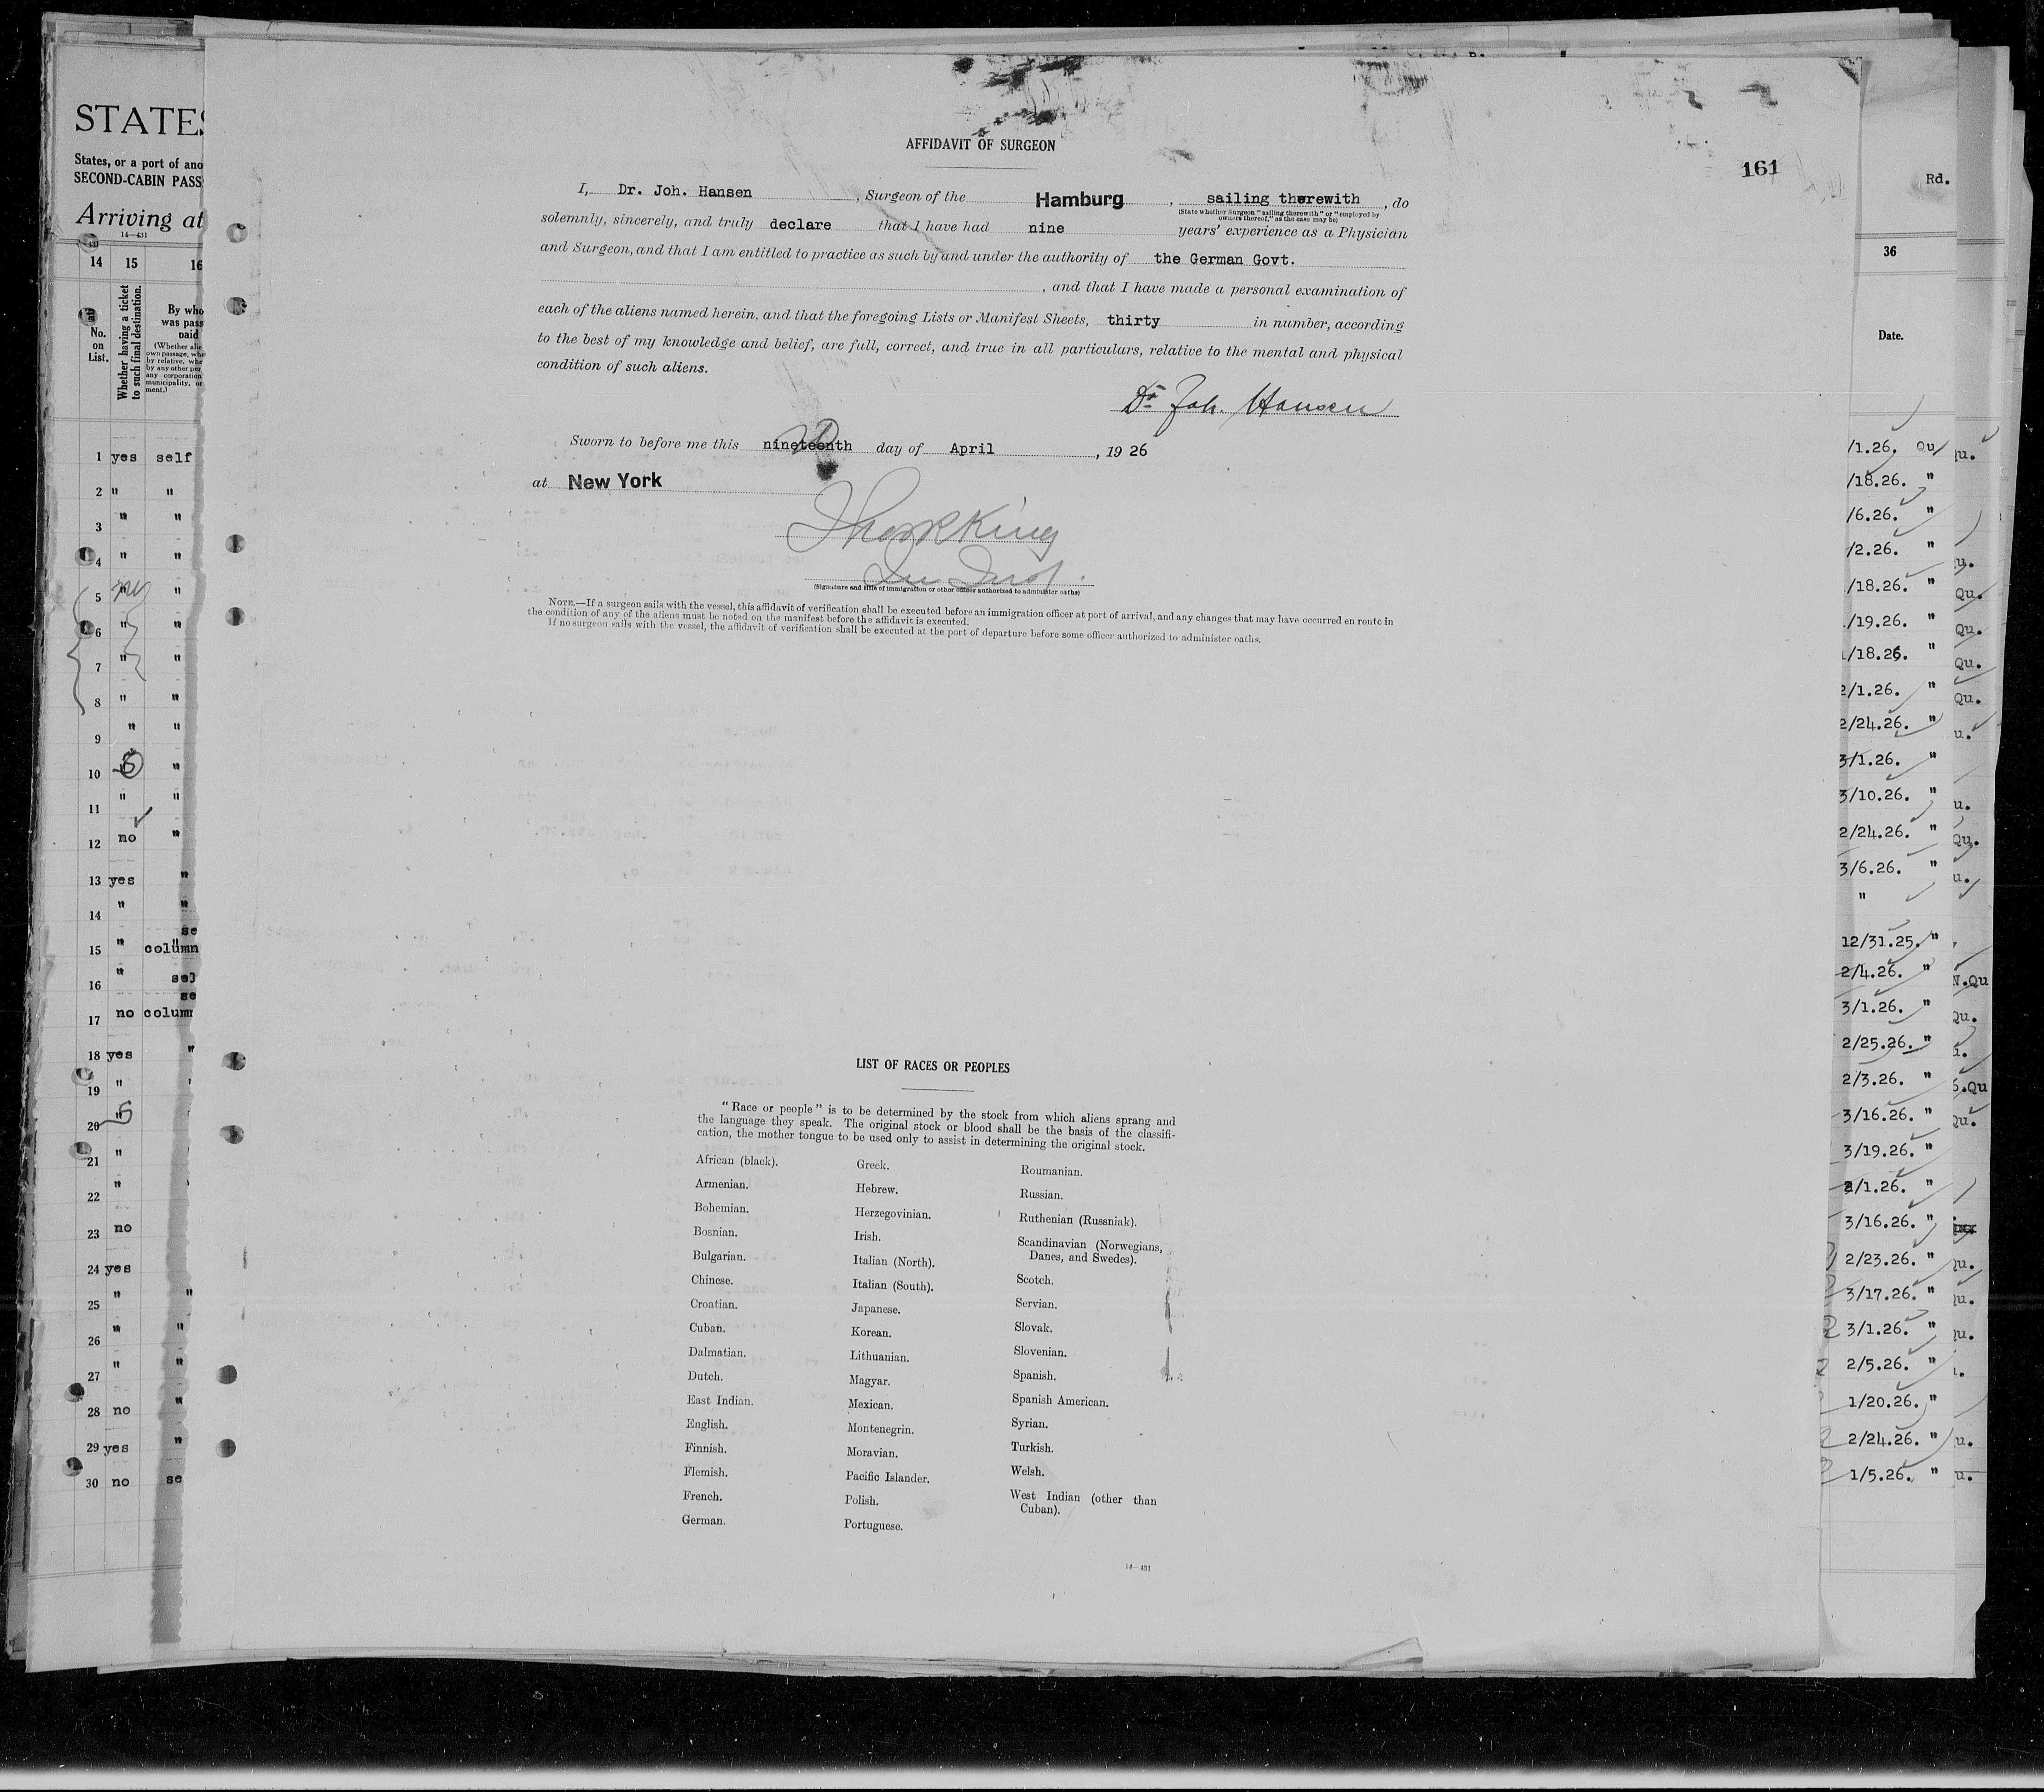 AFFIDAVIT OF SURGEON
161
I, Dr. Joh. Hansen, Surgeon of the Hamburg, sailing therewith, do
(State whether Surgeon "sailing therewith" or "employed by
owners thereof," as the case may be)
solemnly, sincerely, and truly declare that I have had nine years' experience as a Physician
and Surgeon, and that I am entitled to practice as such by and under the authority of the German Govt.
, and that I have made a personal examination of
each of the aliens named herein, and that the foregoing Lists or Manifest Sheets, thirty in number, according
to the best of my knowledge and belief, are full, correct, and true in all particulars, relative to the mental and physical
condition of such aliens.
Dr Joh. Hansen
Sworn to before me this nineteenth day of April, 19 26
at New York
(Signature and title of immigration or other officer authorized to administer oaths)
NOTE.—If a surgeon sails with the vessel, this affidavit of verification shall be executed before an immigration officer at port of arrival, and any changes that may have occurred en route in
the condition of any of the aliens must be noted on the manifest before the affidavit is executed.
If no surgeon sails with the vessel, the affidavit of verification shall be executed at the port of departure before some officer authorized to administer oaths.
LIST OF RACES OR PEOPLES
"Race or people" is to be determined by the stock from which aliens sprang and
the language they speak. The original stock or blood shall be the basis of the classifi-
cation, the mother tongue to be used only to assist in determining the original stock.
African (black).
Armenian.
Bohemian.
Bosnian.
Bulgarian.
Chinese.
Croatian.
Cuban.
Dalmatian.
Dutch.
East Indian.
English.
Finnish.
Flemish.
French.
German.
Greek.
Hebrew.
Herzegovinian.
Irish.
Italian (North).
Italian (South).
Japanese.
Korean.
Lithuanian.
Magyar.
Mexican.
Montenegrin.
Moravian.
Pacific Islander.
Polish.
Portuguese.
Roumanian.
Russian.
Ruthenian (Russniak).
Scandinavian (Norwegians,
Danes, and Swedes).
Scotch.
Servian.
Slovak.
Slovenian.
Spanish.
Spanish American.
Syrian.
Turkish.
Welsh.
West Indian (other than
Cuban).
14—431
STATES
States, or a port of ano
SECOND-CABIN PASS
Arriving at
14—431
14 15 16
No.
on
List.
Whether having a ticket
to such final destination.
By who
was pass
paid
(Whether alie
own passage, whe
by relative, whe
by any other per
any corporation
municipality, or
ment.)
1 yes self
2 " "
3 " "
4 " "
5 " "
6 " "
7 " "
8 " "
9 " "
10 " "
11 " "
12 no "
13 yes "
14 " "
se
15 " column
16 " sel
se
17 no colum
18 yes "
19 "
20 "
21 "
22 "
23 no
24 yes
25 " "
26 " "
27 " "
28 no "
29 yes "
30 no se
Rd.
36
Date.
/1.26. Qu
/18.26. "
/6.26. "
/2.26. "
/18.26. "
/19.26. "
1/18.26. "
2/1.26. "
2/24.26. "
3/1.26. "
3/10.26. "
2/24.26. "
3/6.26. "
"
12/31.25. "
2/4.26. "
3/1.26. "
2/25.26. "
2/3.26. "
3/16.26. "
3/19.26. "
/1.26. "
3/16.26. "
2/23.26. "
3/17.26. "
3/1.26. "
2/5.26. "
1/20.26. "
2/24.26. "
1/5.26. "
u.
u.
Qu.
Qu.
Qu.
Qu.
u.
u.
Qu.
u.
N.Qu
Qu.
u.
S.Qu
Qu.
Qu.
Qu.
Qu.
u.
u.